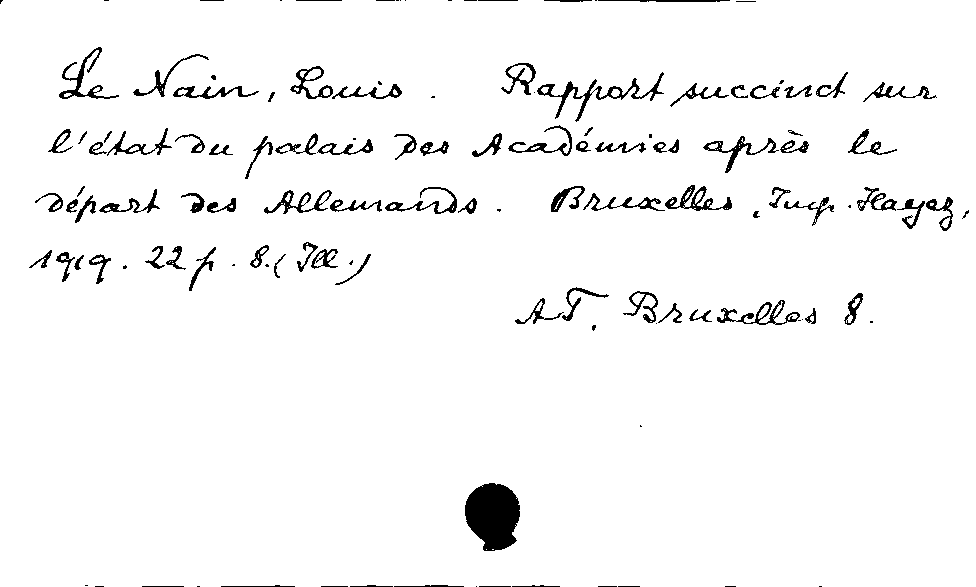 Le Nain, Louis. Rapport succinct sur
l'état du palais des Académies après le
départ des Allemands. Bruxelles, Imp. Hayez,
1919. 22 p. 8. (Ill.)
AT. Bruxelles 8.